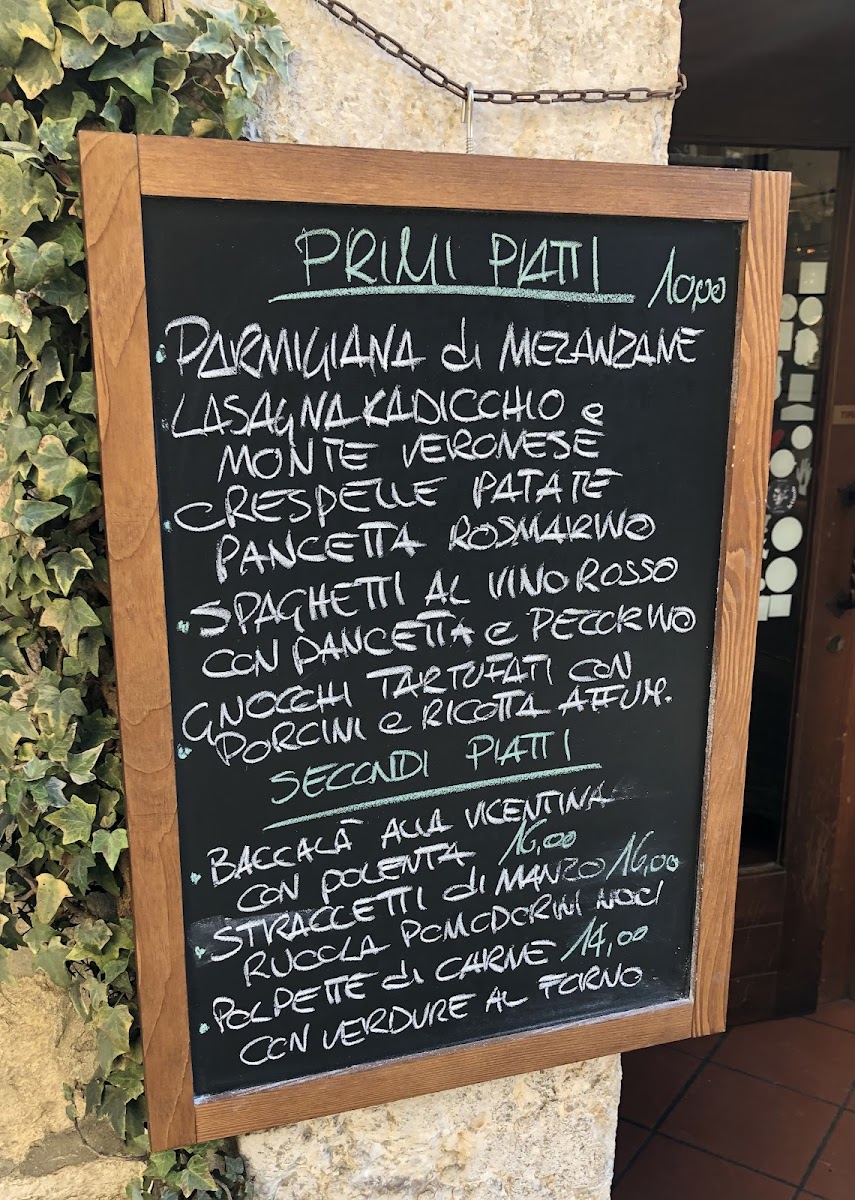 PRIMI PIATTI 10,00
PARMIGIANA di MELANZANE
LASAGNA RADICCHIO e
MONTE VERONESE
CRESPELLE PATATE
PANCETTA ROSMARINO
SPAGHETTI AL VINO ROSSO
CON PANCETTA e PECORINO
GNOCCHI TARTUFATI CON
PORCINI e RICOTTA AFFUM.
SECONDI PIATTI
BACCALÀ ALLA VICENTINA
CON POLENTA 16,00
STRACCETTI di MANZO 16,00
RUCOLA POMODORINI NOCI
POLPETTE di CARNE 14,00
CON VERDURE AL FORNO